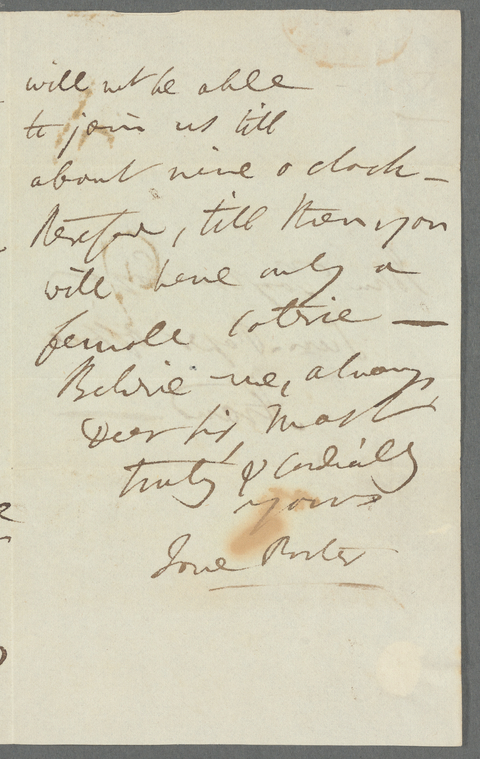 will not be able
to join us till
about nine o clock —
Therefore, till then you
will have only a
female coterie —
Believe me, always
Dear Sir, Most
truly & cordially
yours
Jane Porter